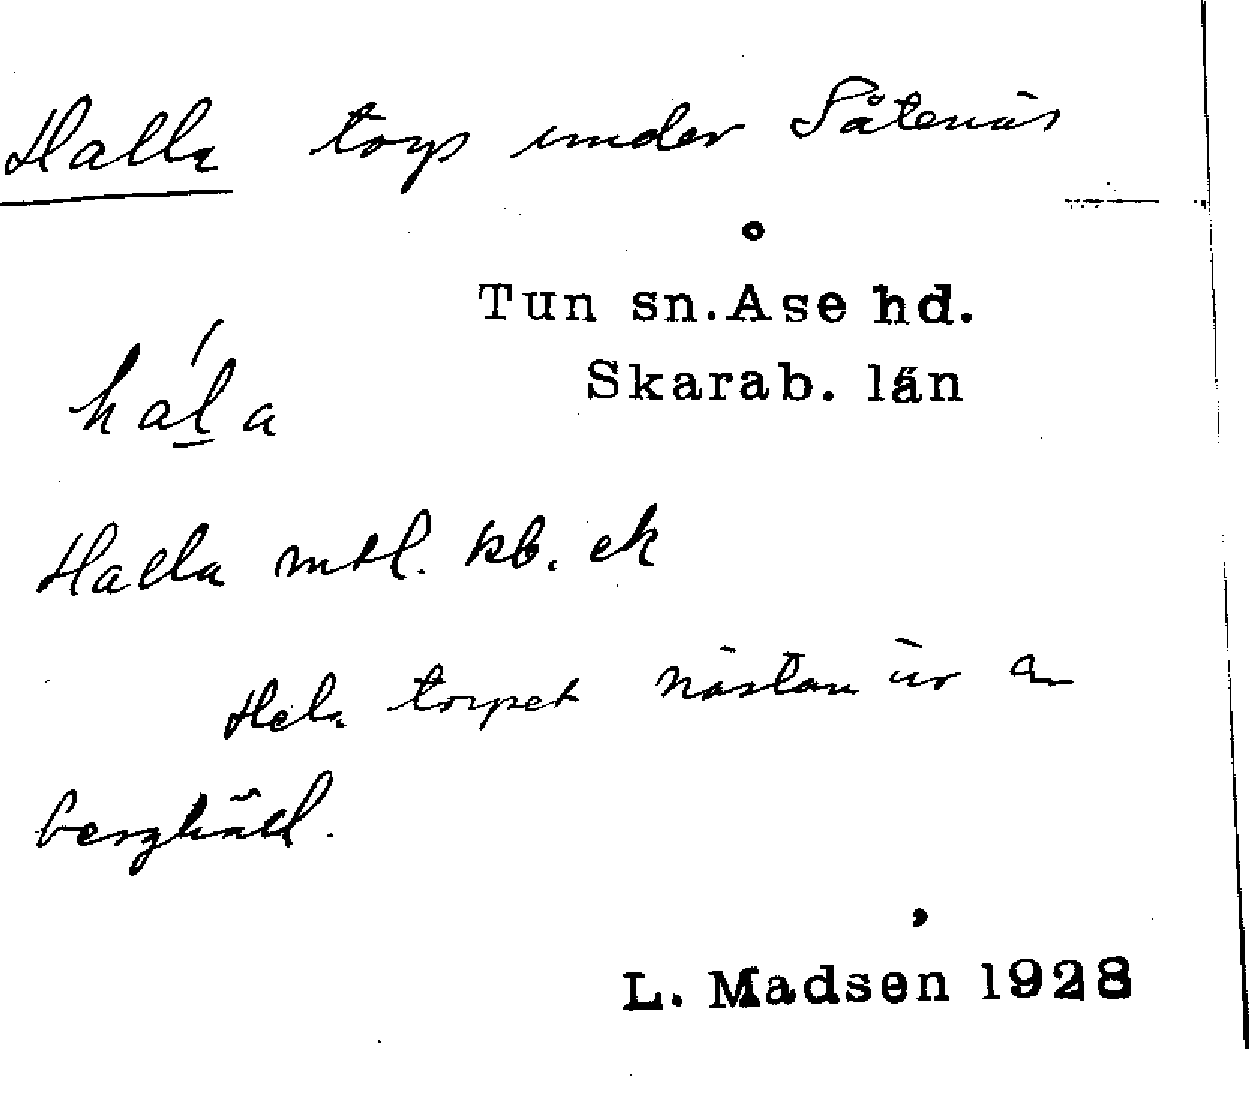 Halla torp under Såtenäs
Tun sn. Åse hd.
Skarab. län
hál̲a
Halla mtl. kb. ek
Hela torpet nästan är en
berghäll.
L. Madsen 1928